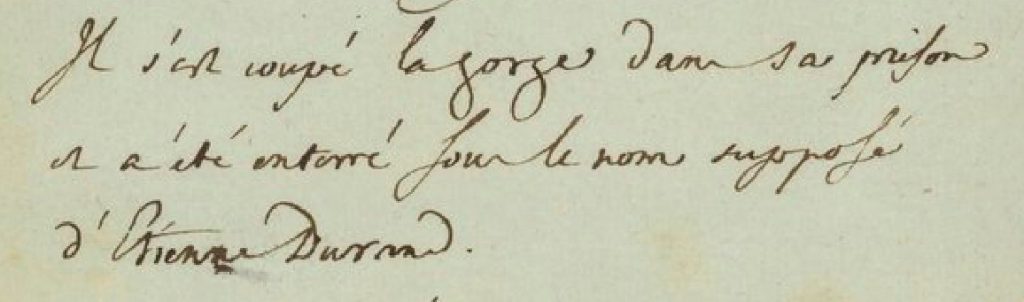 Il s'est coupé la gorge dans sa prison
et a été enterré sous le nom supposé
d'Etienne Durand.